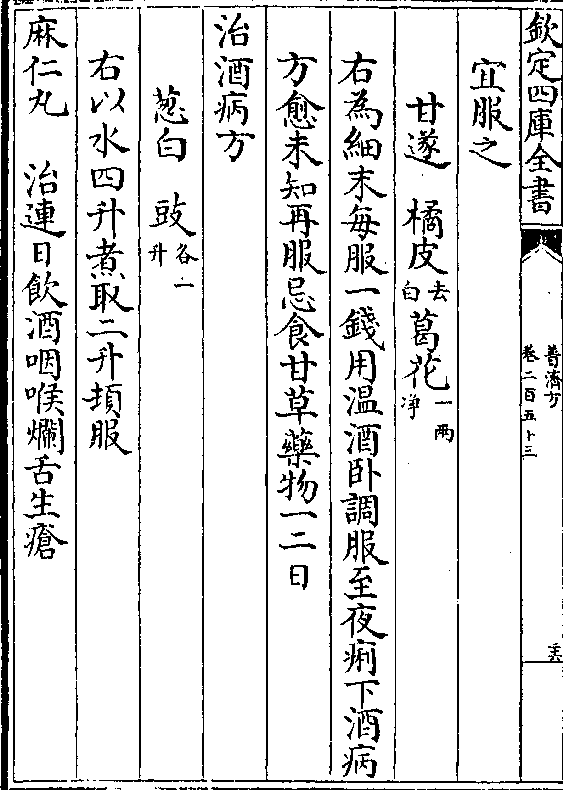 欽定四庫全書
普濟方
卷二百五十三
宜服之
甘遂　橘皮去白　葛花一兩净
右為細末每服一錢用温酒卧調服至夜痢下酒病
方愈未知再服忌食甘草藥物一二日
治酒病方
葱白　豉各一升
右以水四升煮取二升頓服
麻仁丸　治連日飲酒咽喉爛舌生瘡